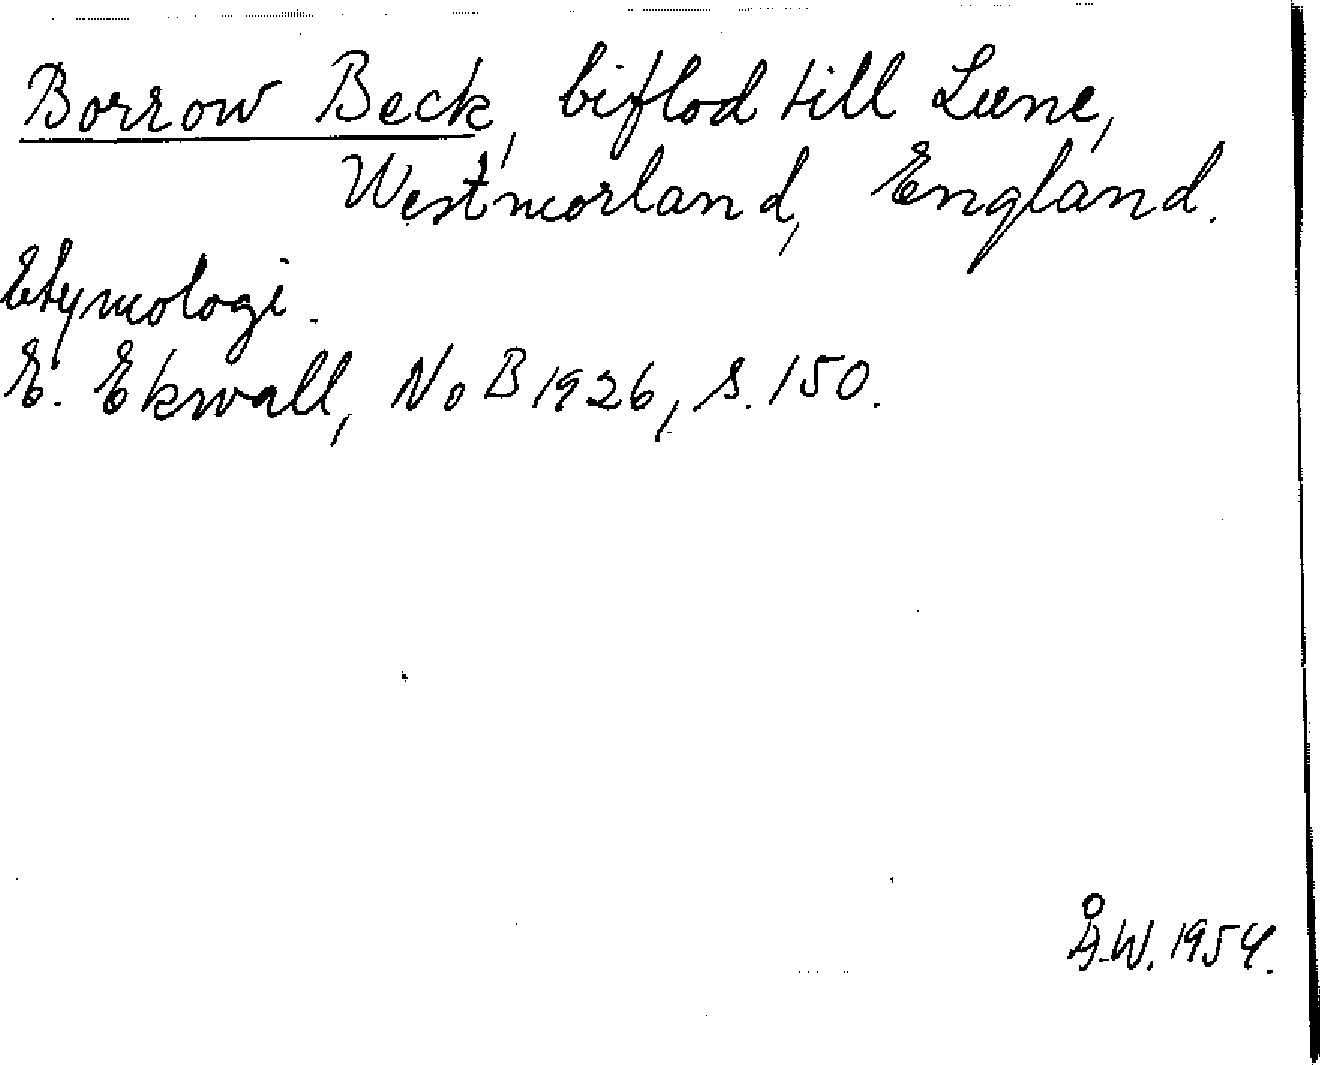 Borrow Beck, biflod till Lune,
Westmorland, England.
Etymologi.
E. Ekwall, NoB 1926, s. 150.
Å.W. 1954.